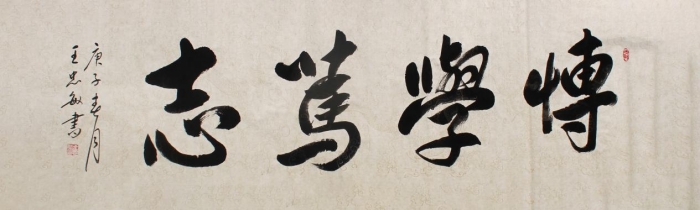 博學篤志
庚子春月
王忠敏書